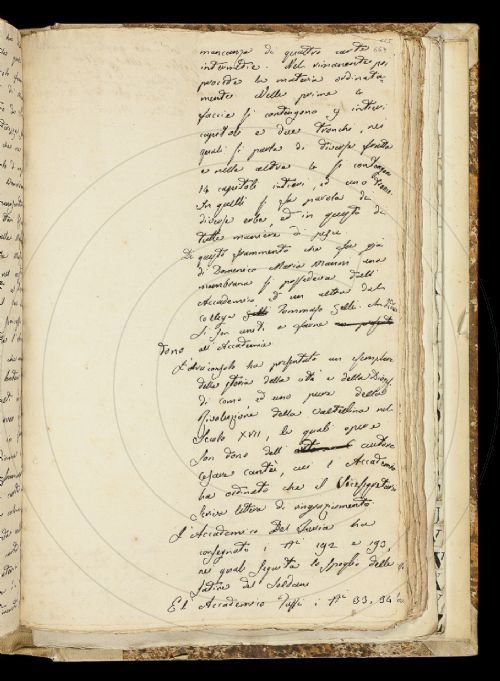 mancanza di quattro carte
intermedie. Nel rimanente po,
procede la materia ordinata
mente Nelle prime 4
faccie si contengono 9 intieri
capitoli e due tronchi, nei
quali si parla di diverse frutta
e nelle altre 4 si contengon
14 capitoli intieri, ed uno tronco
In quelli si fa parola di
diverse erbe, ed in questo di
tutte maniere di pepe
Di questo frammento che fu già
di Domenico Maria Manni una
membrana si possedeva dall'
Accademia ed un altra dal
collega Tommaso Gelli. Ambedue
si son uniti e farne
dono all'Accademia
L'Arciconsolo ha presentato un esemplare
della storia della città e della Diocesi
di Como ed uno pure della
Rivoluzione della Valtellina nel
Secolo XVII, le quali opere
son dono dell' autore
Cesare Cantù, cui l'Accademia
ha ordinato che il Vicesegretario
scriva lettera di ringraziamento
L'Accademico Del Furia ha
consegnato i Ni 192 e 193,
nei quali seguita lo spoglio delle
Satire del Soldani
E l'Accademico i Ni 33, 34